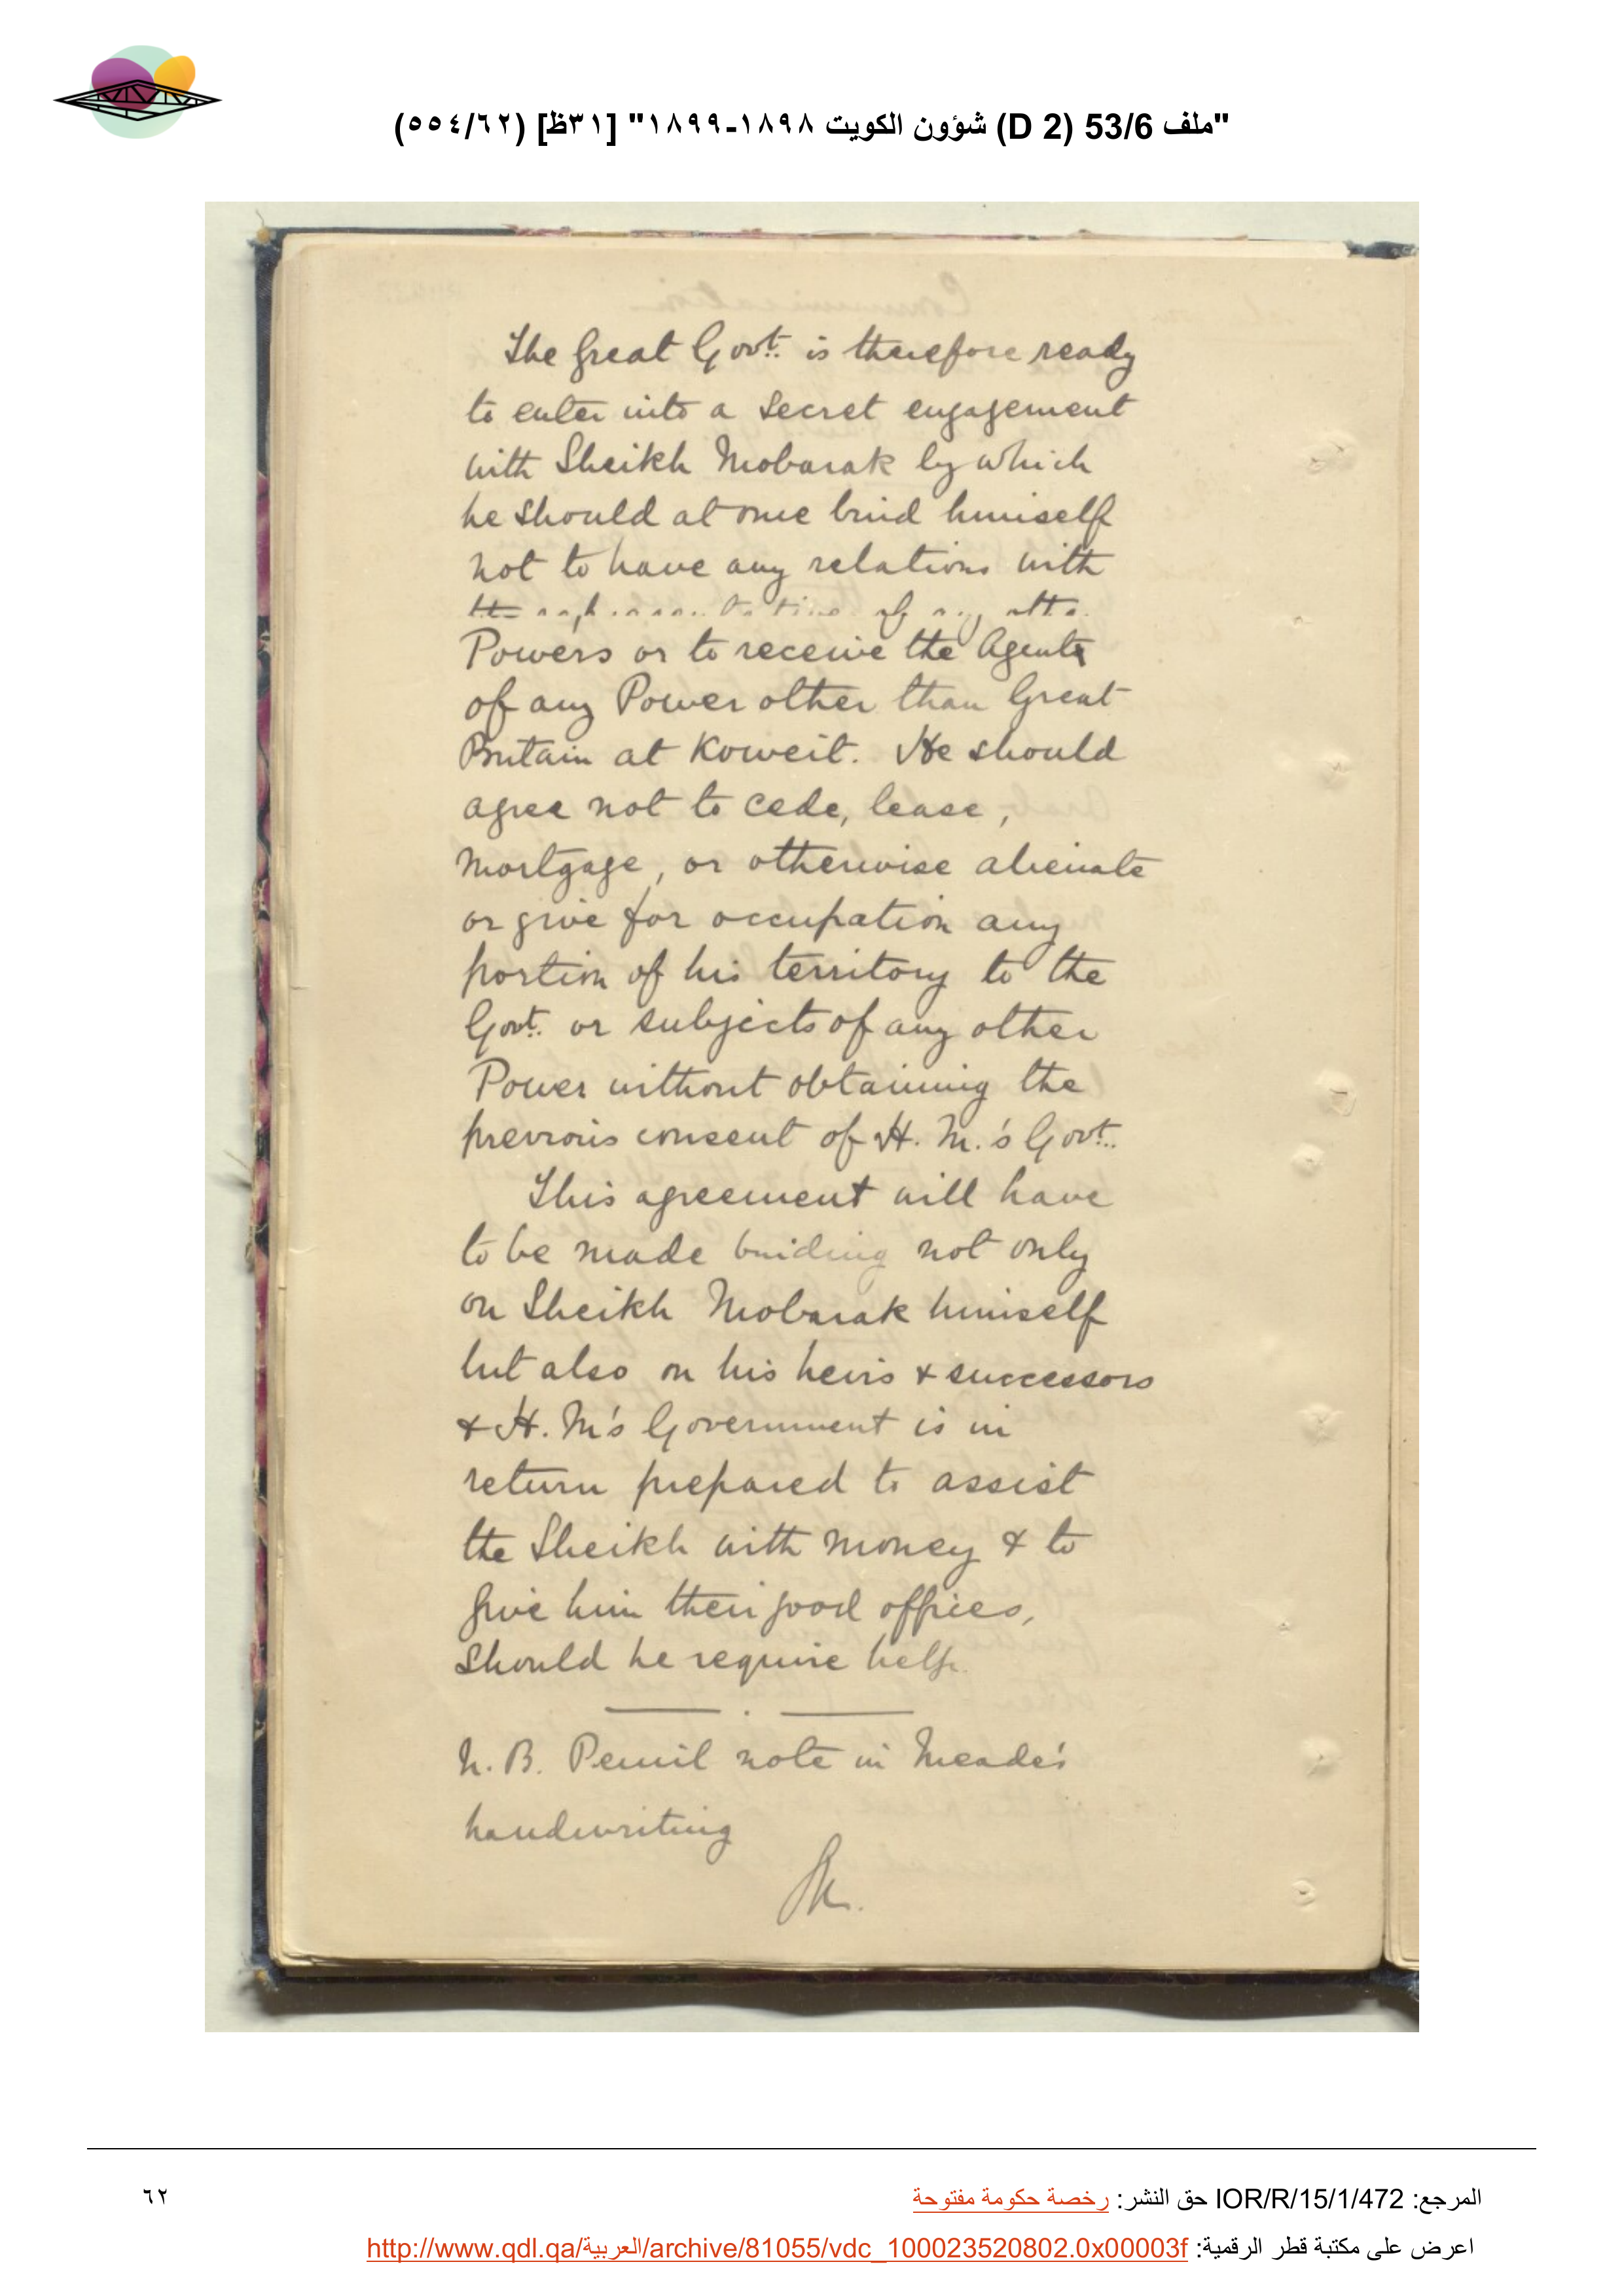 "ملف 53/6 (D 2) شؤون الكويت ١٨٩٨-١٨٩٩" [٣١ظ] (٦٢/٥٥٤)
The Great Govt. is therefore ready
to enter into a secret engagement
with Sheikh Mobarak by which
he should at once bind himself
not to have any relations with
the representative of any other
Powers or to receive the Agents
of any Power other than Great
Britain at Koweit. He should
agree not to cede, lease,
mortgage, or otherwise alienate
or give for occupation any
portion of his territory to the
Govt. or subjects of any other
Power without obtaining the
previous consent of H. M.'s Govt.
This agreement will have
to be made binding not only
on Sheikh Mobarak himself
but also on his heirs & successors
& H. M's Government is in
return prepared to assist
the Sheikh with money & to
give him their good offices,
should he require help.
N. B. Pencil note in Meade's
handwriting
المرجع: IOR/R/15/1/472 حق النشر: رخصة حكومة مفتوحة
٦٢
اعرض على مكتبة قطر الرقمية: http://www.qdl.qa/العربية/archive/81055/vdc_100023520802.0x00003f